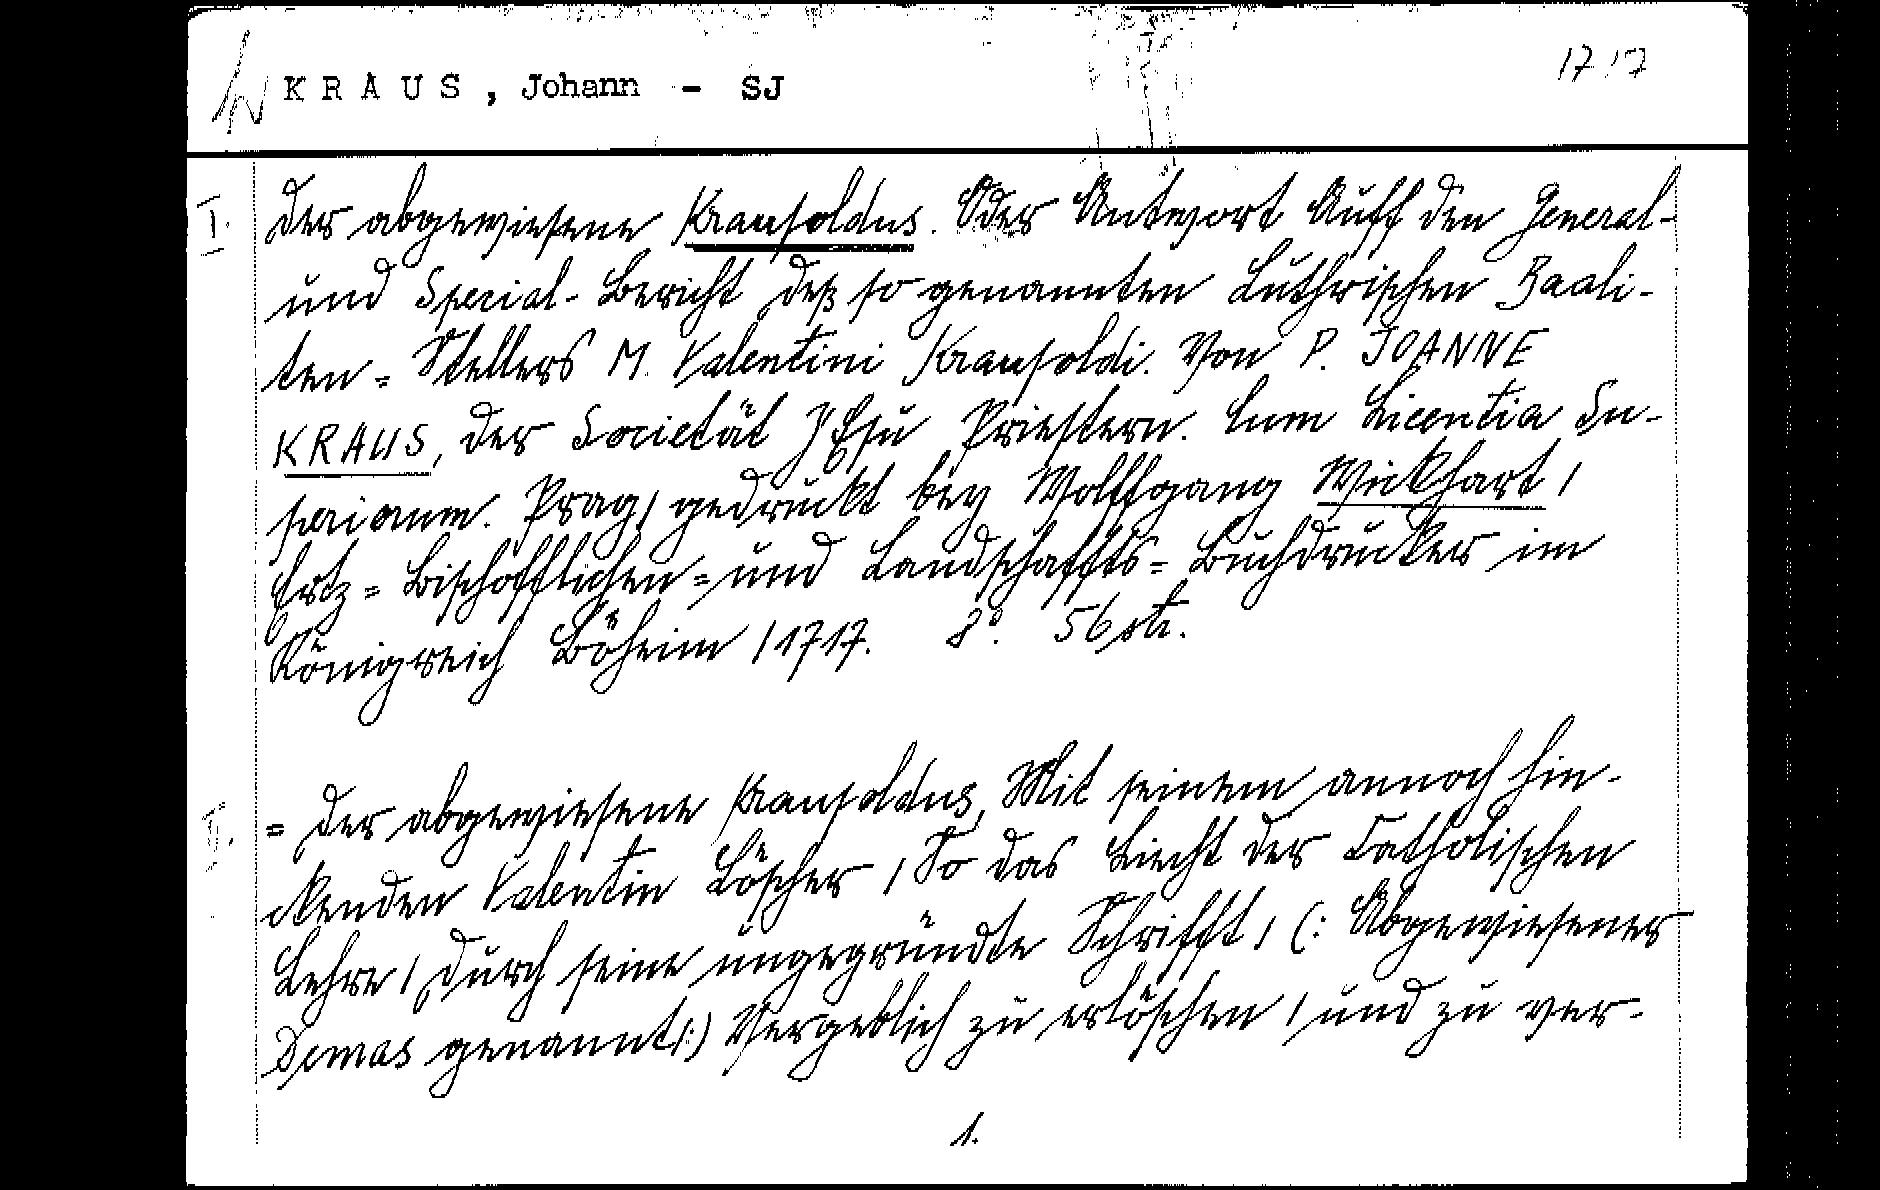 KRAUS, Johann - SJ
1717
I. Der abgewiesene Krausoldus. Oder Antwort Auff den General-
und Special-Bericht deß so genannten Luthrischen Baali-
ten=Stellers M. Valentini Krausoldi. Von P. JOANNE
KRAUS, der Societät JEsu Priestern. Cum Licentia Su-
periorum. Prag, gedruckt bey Wolffgang Wickhart /
Ertz=Bischöfflichen=und Landschaffts=Buchdrucker im
Königreich Böheim / 1717. 8°. 56 str.
II. = Der abgewiesene Krausoldus, Mit seinem annoch hin-
ckenden Valentin Löscher / So das Liecht der Catholischen
Lehre / durch seine ungegründte Schrifft / (: Abgewiesener
Demas genannt /:) Vergeblich zu erlöschen / und zu ver-
1.